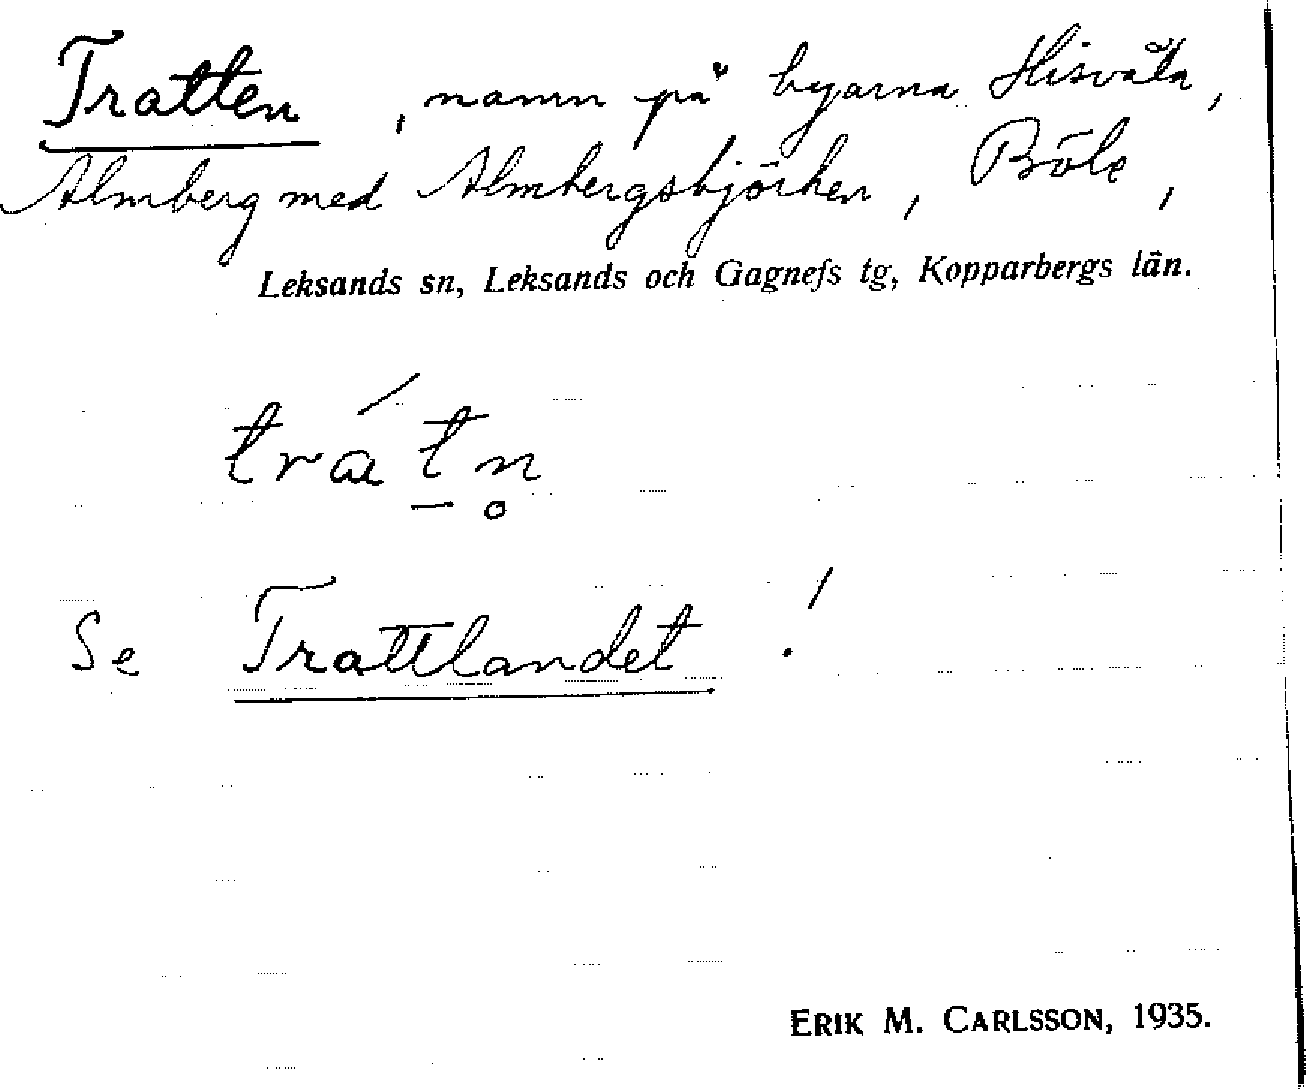 Tratten, namn på byarna Hisvåla,
Almberg med Almbergsbjörken, Böle,
Leksands sn, Leksands och Gagnefs tg, Kopparbergs län.
trát̠n̥
Se Trattlandet!
ERIK M. CARLSSON, 1935.